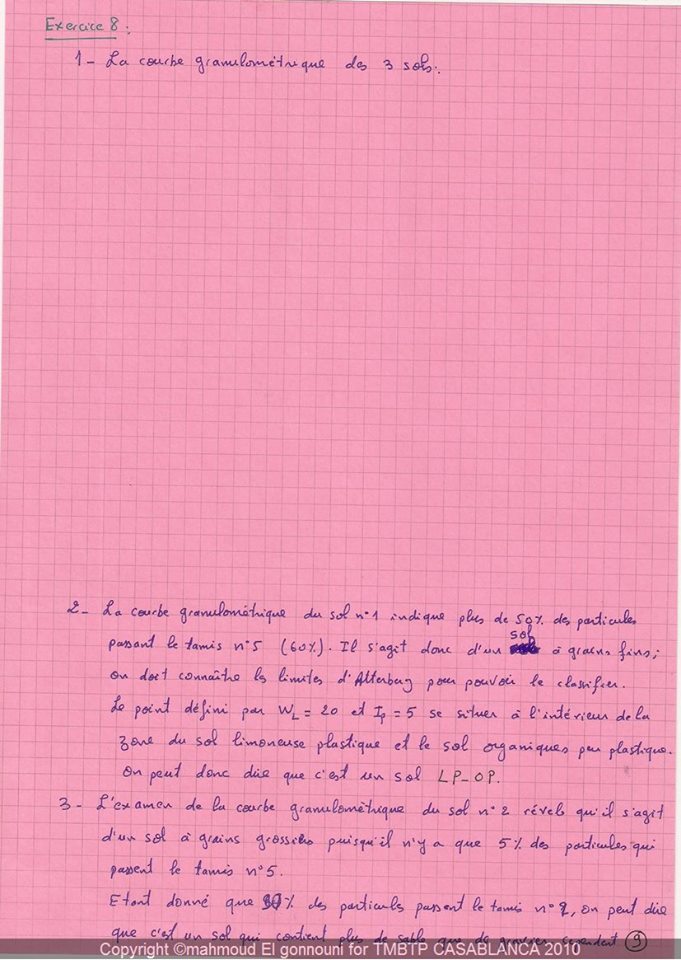 Exercice 8 :
1 - La courbe granulométrique des 3 sols.
2 - La courbe granulométrique du sol n°1 indique plus de 50% des particules
passant le tamis n°5 (60%). Il s'agit donc d'un sol à grains fins;
on doit connaître les limites d'Atterberg pour pouvoir le classifier.
Le point défini par WL = 20 et Ip = 5 se situer à l'intérieur de la
zone du sol limoneuse plastique et le sol organiques peu plastique.
On peut donc dire que c'est un sol LP-OP.
3 - L'examen de la courbe granulométrique du sol n°2 révels qu'il s'agit
d'un sol à grains grossiers puisqu'il n'y a que 5% des particules qui
passent le tamis n°5.
Etant donné que % des particules passent le tamis n° on peut dire
que c'est un sol qui contient plus de sable que de gravier cependant 9
Copyright ©mahmoud El gonnouni for TMBTP CASABLANCA 2010